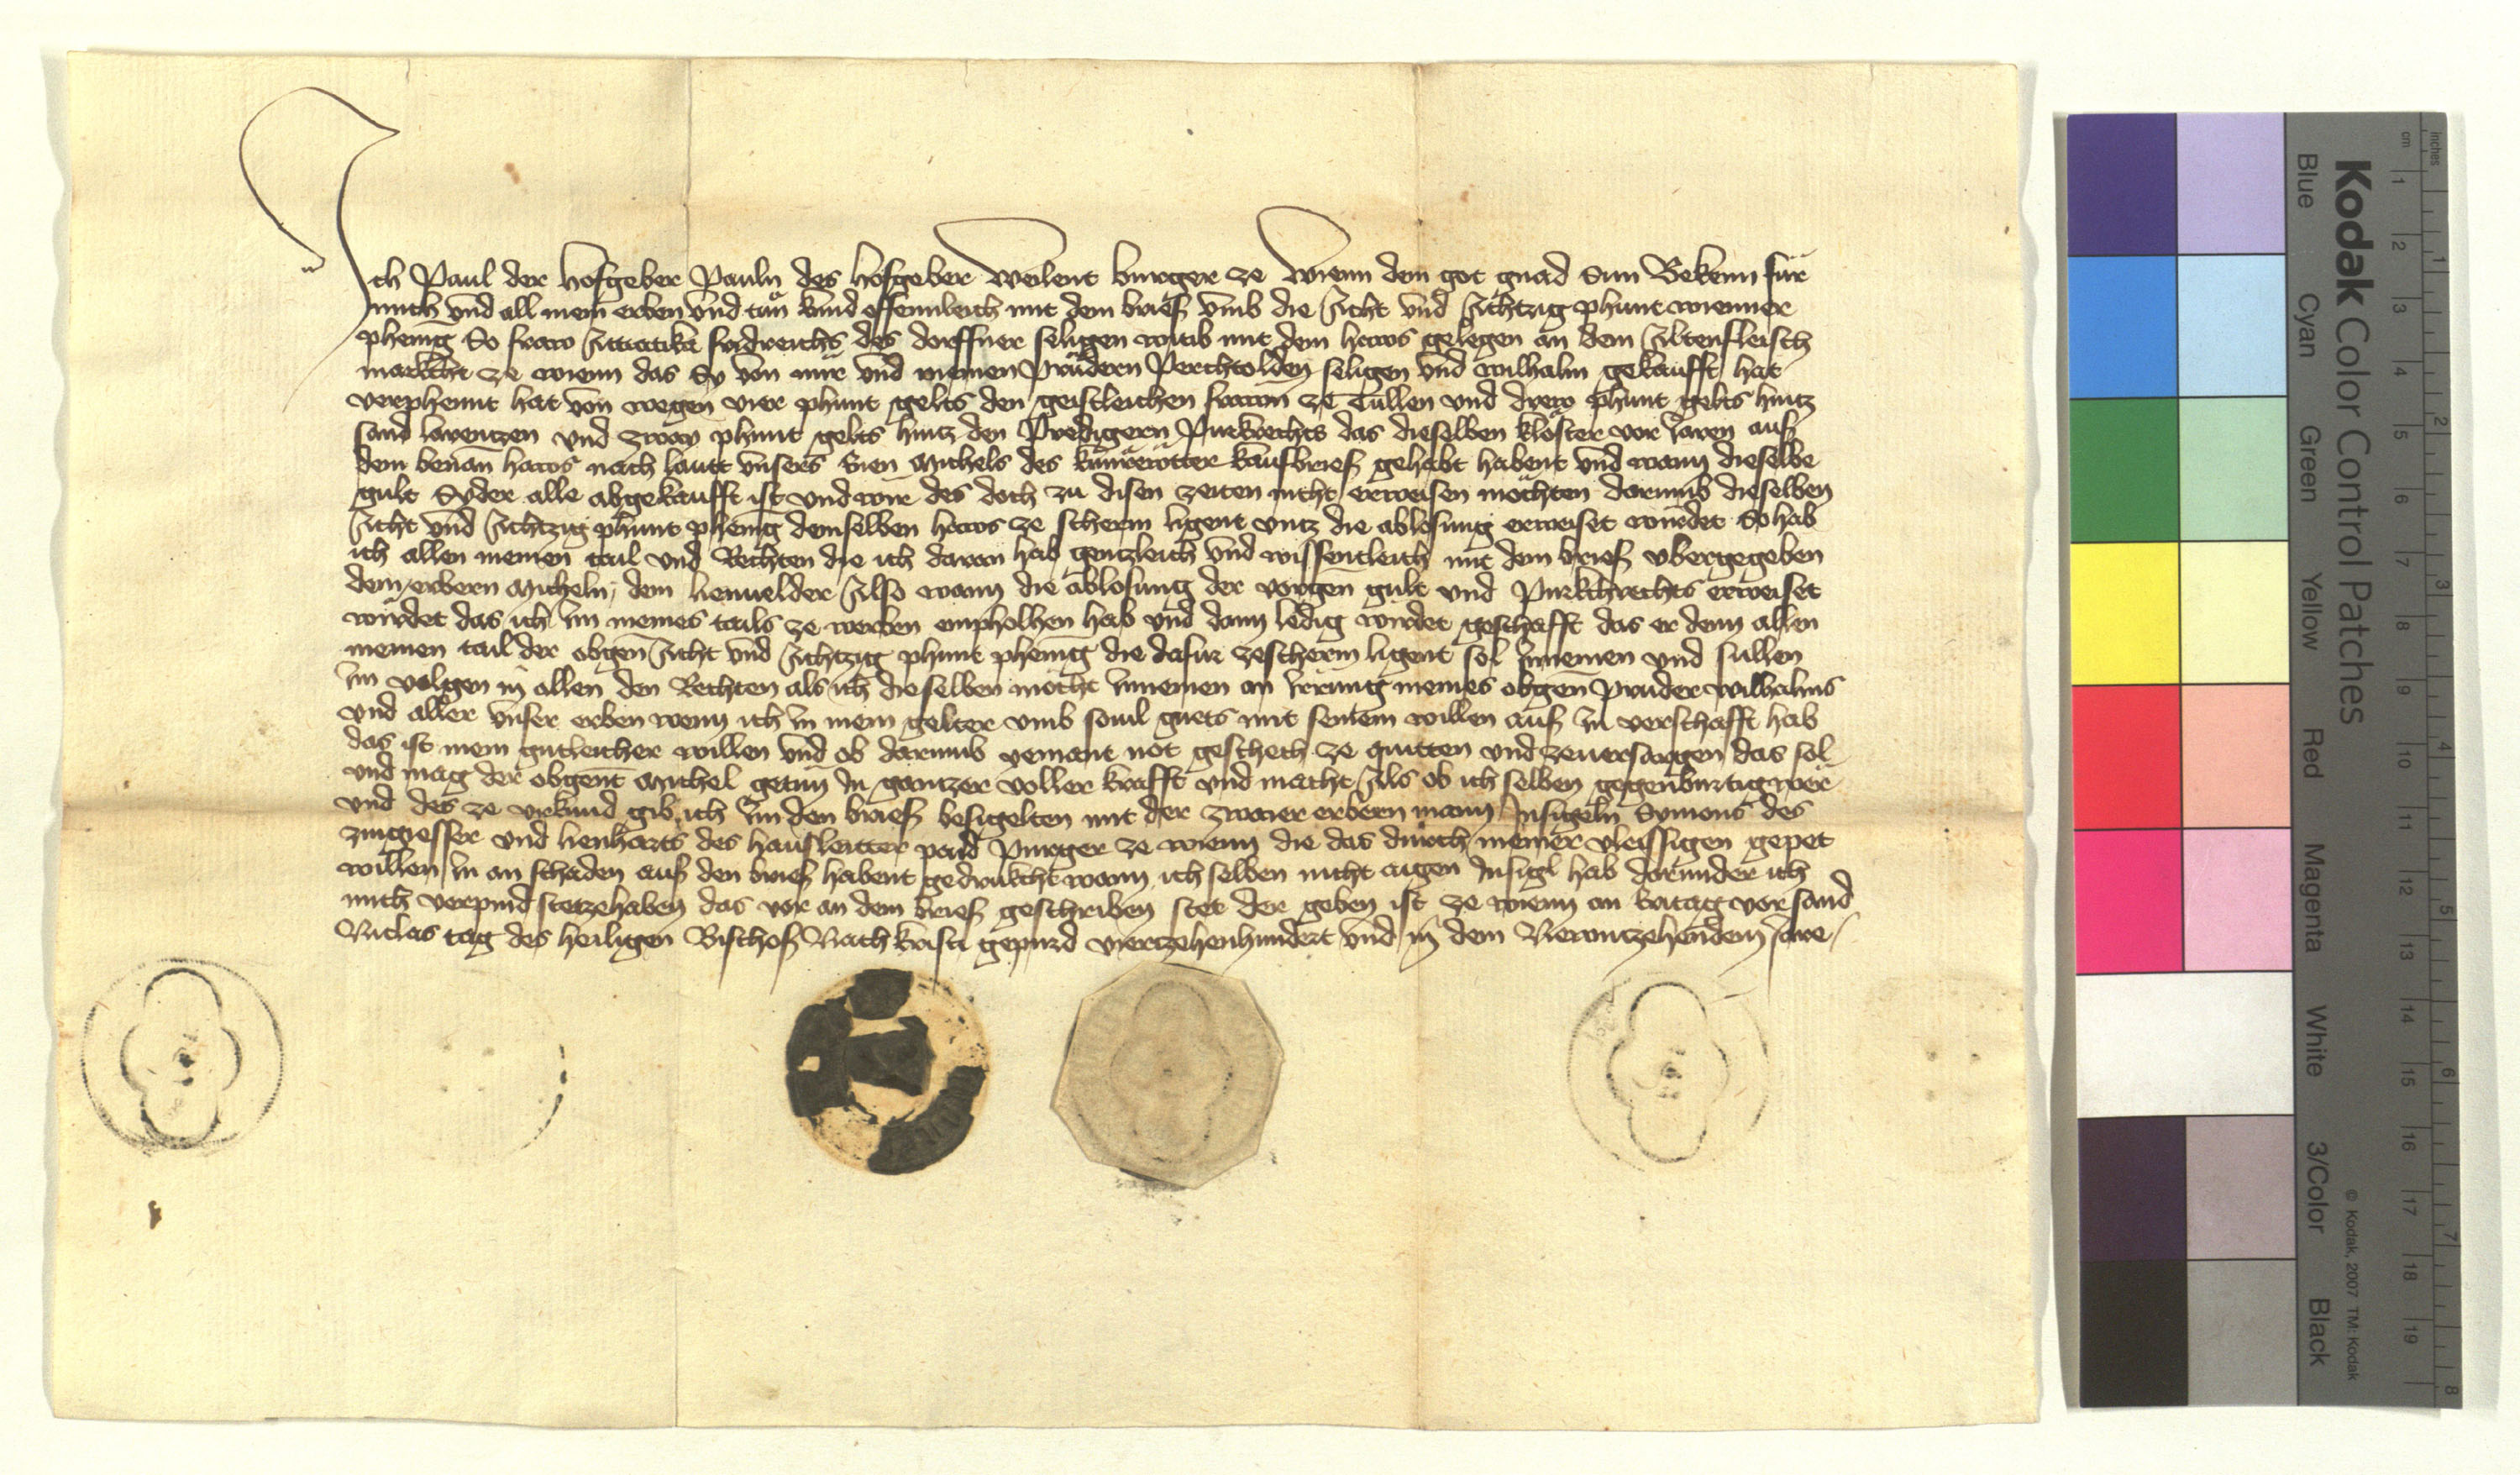 Ich Paul der hofgeber Pauln des hofgeber weilent burger ze wienn dem got gnad Sun Bekenn für
mich vnd all mein erben vnd tůn kund offennleich mit dem brief vmb die Acht vnd Achtzig phunt wienner
phening So fraw fridreichs des dorffner seligen witib mit dem haws gelegen an dem Altenfleisch
markcht ze wienn das Sy von mir vnd meinen Prüdern Perchtolden seligen vnd wilhalm gekaufft hat
verphennt hat von wegen vier phunt gelts den geistleichen frawn ze Tulln vnd drew phunt gelts hintz
sand larentzen vnd zway phunt gelts hintz den Predigern Purkrechts das dieselben klöster vor Jaren auf
dem benan haws nach lautt vnsers Michels des kaufbrief gehabt habent vnd wann dieselbe
gult Syder alle abgekaufft ist vnd wir des doch zu disen zeiten nicht erweisen möchten darumb dieselben
Acht vnd Achtzig phunt phening demselben haws ze scherm ligent vntz die ablosung erweiset wurdet So hab
ich allen meinen tail vnd Rechten die ich daran hab gentzleich vnd wissentleich mit dem brief vbergegeben
dem erbern Micheln dem lienuelder Also wann die ablosung der vorgen gült vnd Purkchrechts erweiset
wirdet das ich im meines tails ze werben empholhen hab vnd dann ledig wirdet geschafft das er denn allen
meinen tail der obgen Acht vnd Achtzig phunt phening die dafur zescherm ligent sol Innemen vnd sullen
Im volgen in allen den Rechten als ich dieselben mocht Innemen an Irrung meines obgen Pruder wilhalms
vnd aller vnser erben wenn ich In mein gelter vmb souil guets mit seinem willen auf In verschafft hab
das ist mein gutleicher willen vnd ob darumb yemant not geschech ze quitten vnd zeuersorgen das sol
vnd mag der obgent Michel getun In gantzer voller krafft vnd macht Als ob ich selben gegenburtig wer
vnd des ze vrkund gib ich Im den brief besigelten mit der zwaier erbern mann Insigeln Symons des
zingiesser vnd lienharts des hausleitter paid Purger ze wienn die das durch meiner vleissigen gepet
willen In an schaden auf den brief habent gedrukcht wann ich selben nicht aigen Insigl hab darunder ich
mich verpind stetzehaben das vor an dem brief geschriben stet der geben ist ze wienn an fritag vor sand
Niclas tag des heiligen Bischof Nach kristi gepurd vierzehenhundert vnd in dem Newntzehendem Jare
Kodak Color Control Patches
Blue Cyan Green Yellow Red Magenta White 3/Color Black
© Kodak, 2007 TM: Kodak
cm 1 2 3 4 5 6 7 8 9 10 11 12 13 14 15 16 17 18 19
inches 1 2 3 4 5 6 7 8